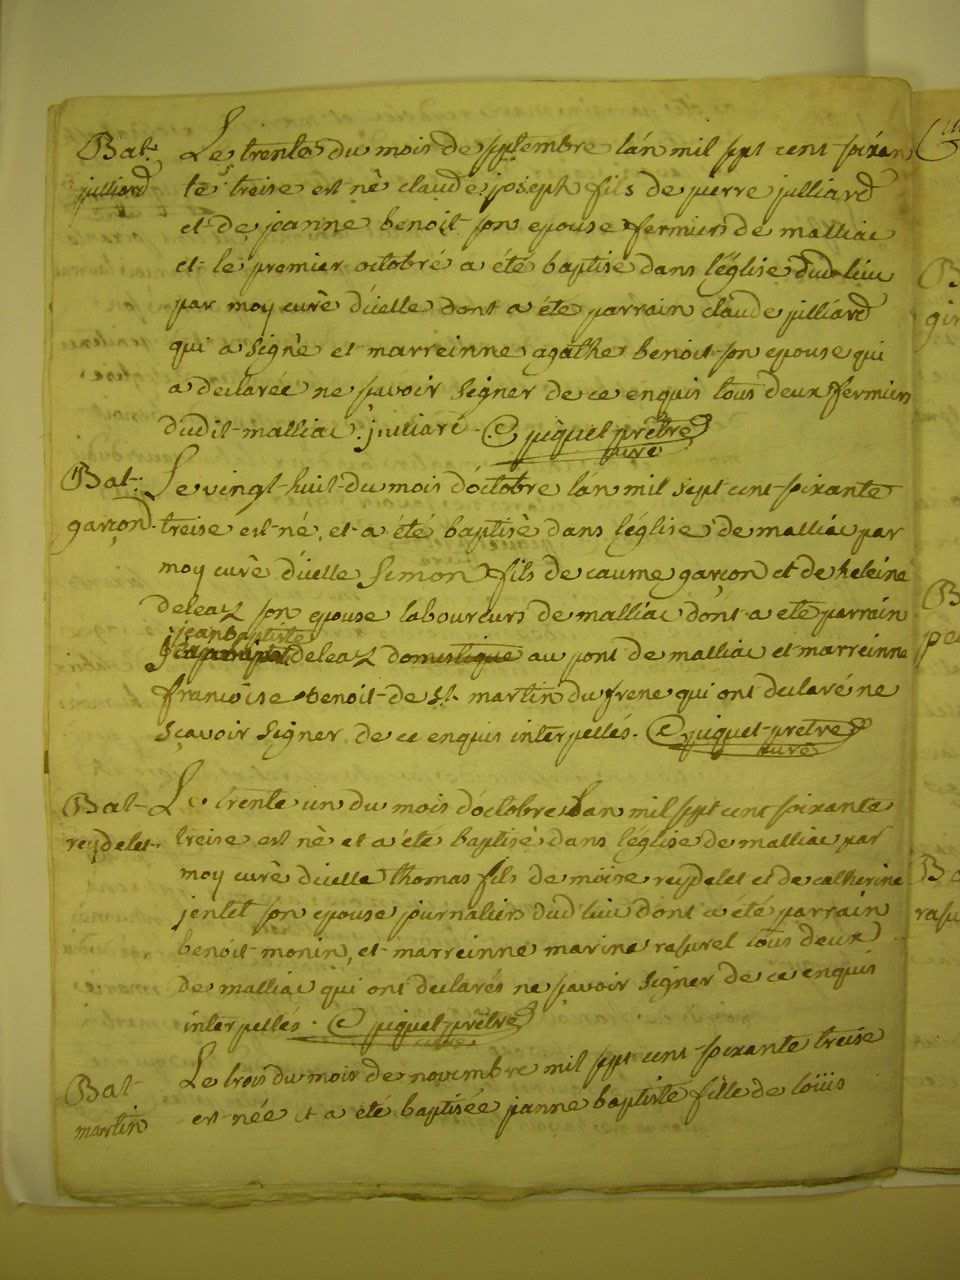 Bat.
julliard
Le trente du mois de septembre lán mil sept cent soixan
te treise est nè claude joseph fils de pierre julliard
et de jeanne benoit son epouse fermiers de malliac
et le premier octobré a été baptisé dans l'église dud lieu
par moy curè d'icelle dont a éte parrain claude julliard
qui a signè et marreinne agathe benoit son epouse qui
a declarée ne savoir signer de ce enquis tous deux fermiers
dudit malliac. juiliard C piquet prêtre
curé
Bat.
garçon.
Le vingt huit du mois d'octobre lán mil sept cent soixante
treise est né, et a été baptisè dans l'église de malliac par
moy curè d'icelle Simon fils de caume garçon et de heleine
deleaz son epouse laboureurs de malliac dont a eté parrain
jean baptiste
deleaz domestique au pont de malliac et marreinne
francoise benoit de St. martin du frene qui ont declaré ne
sçavoir signer de ce enquis interpellés. C piquet pretre
curé
Bat
reydelet.
Le trente un du mois d'octobre lan mil sept cent soixante
treise est nè et a éte baptisè dans l'église de malliac par
moy curè d'icelle thomas fils de moise reydelet et de catherine
jentet son epouse journaliers dud lieu dont a été parrain
benoit monin, et marreinne marine rasurel tous deux
de malliac qui ont declarés ne savoir signer de ce enquis
interpellés. C piquet prêtre
Bat
martin
Le trois du mois de novembre mil sept cent soixante treise
est née et a été baptisée janne baptiste fille de loüis